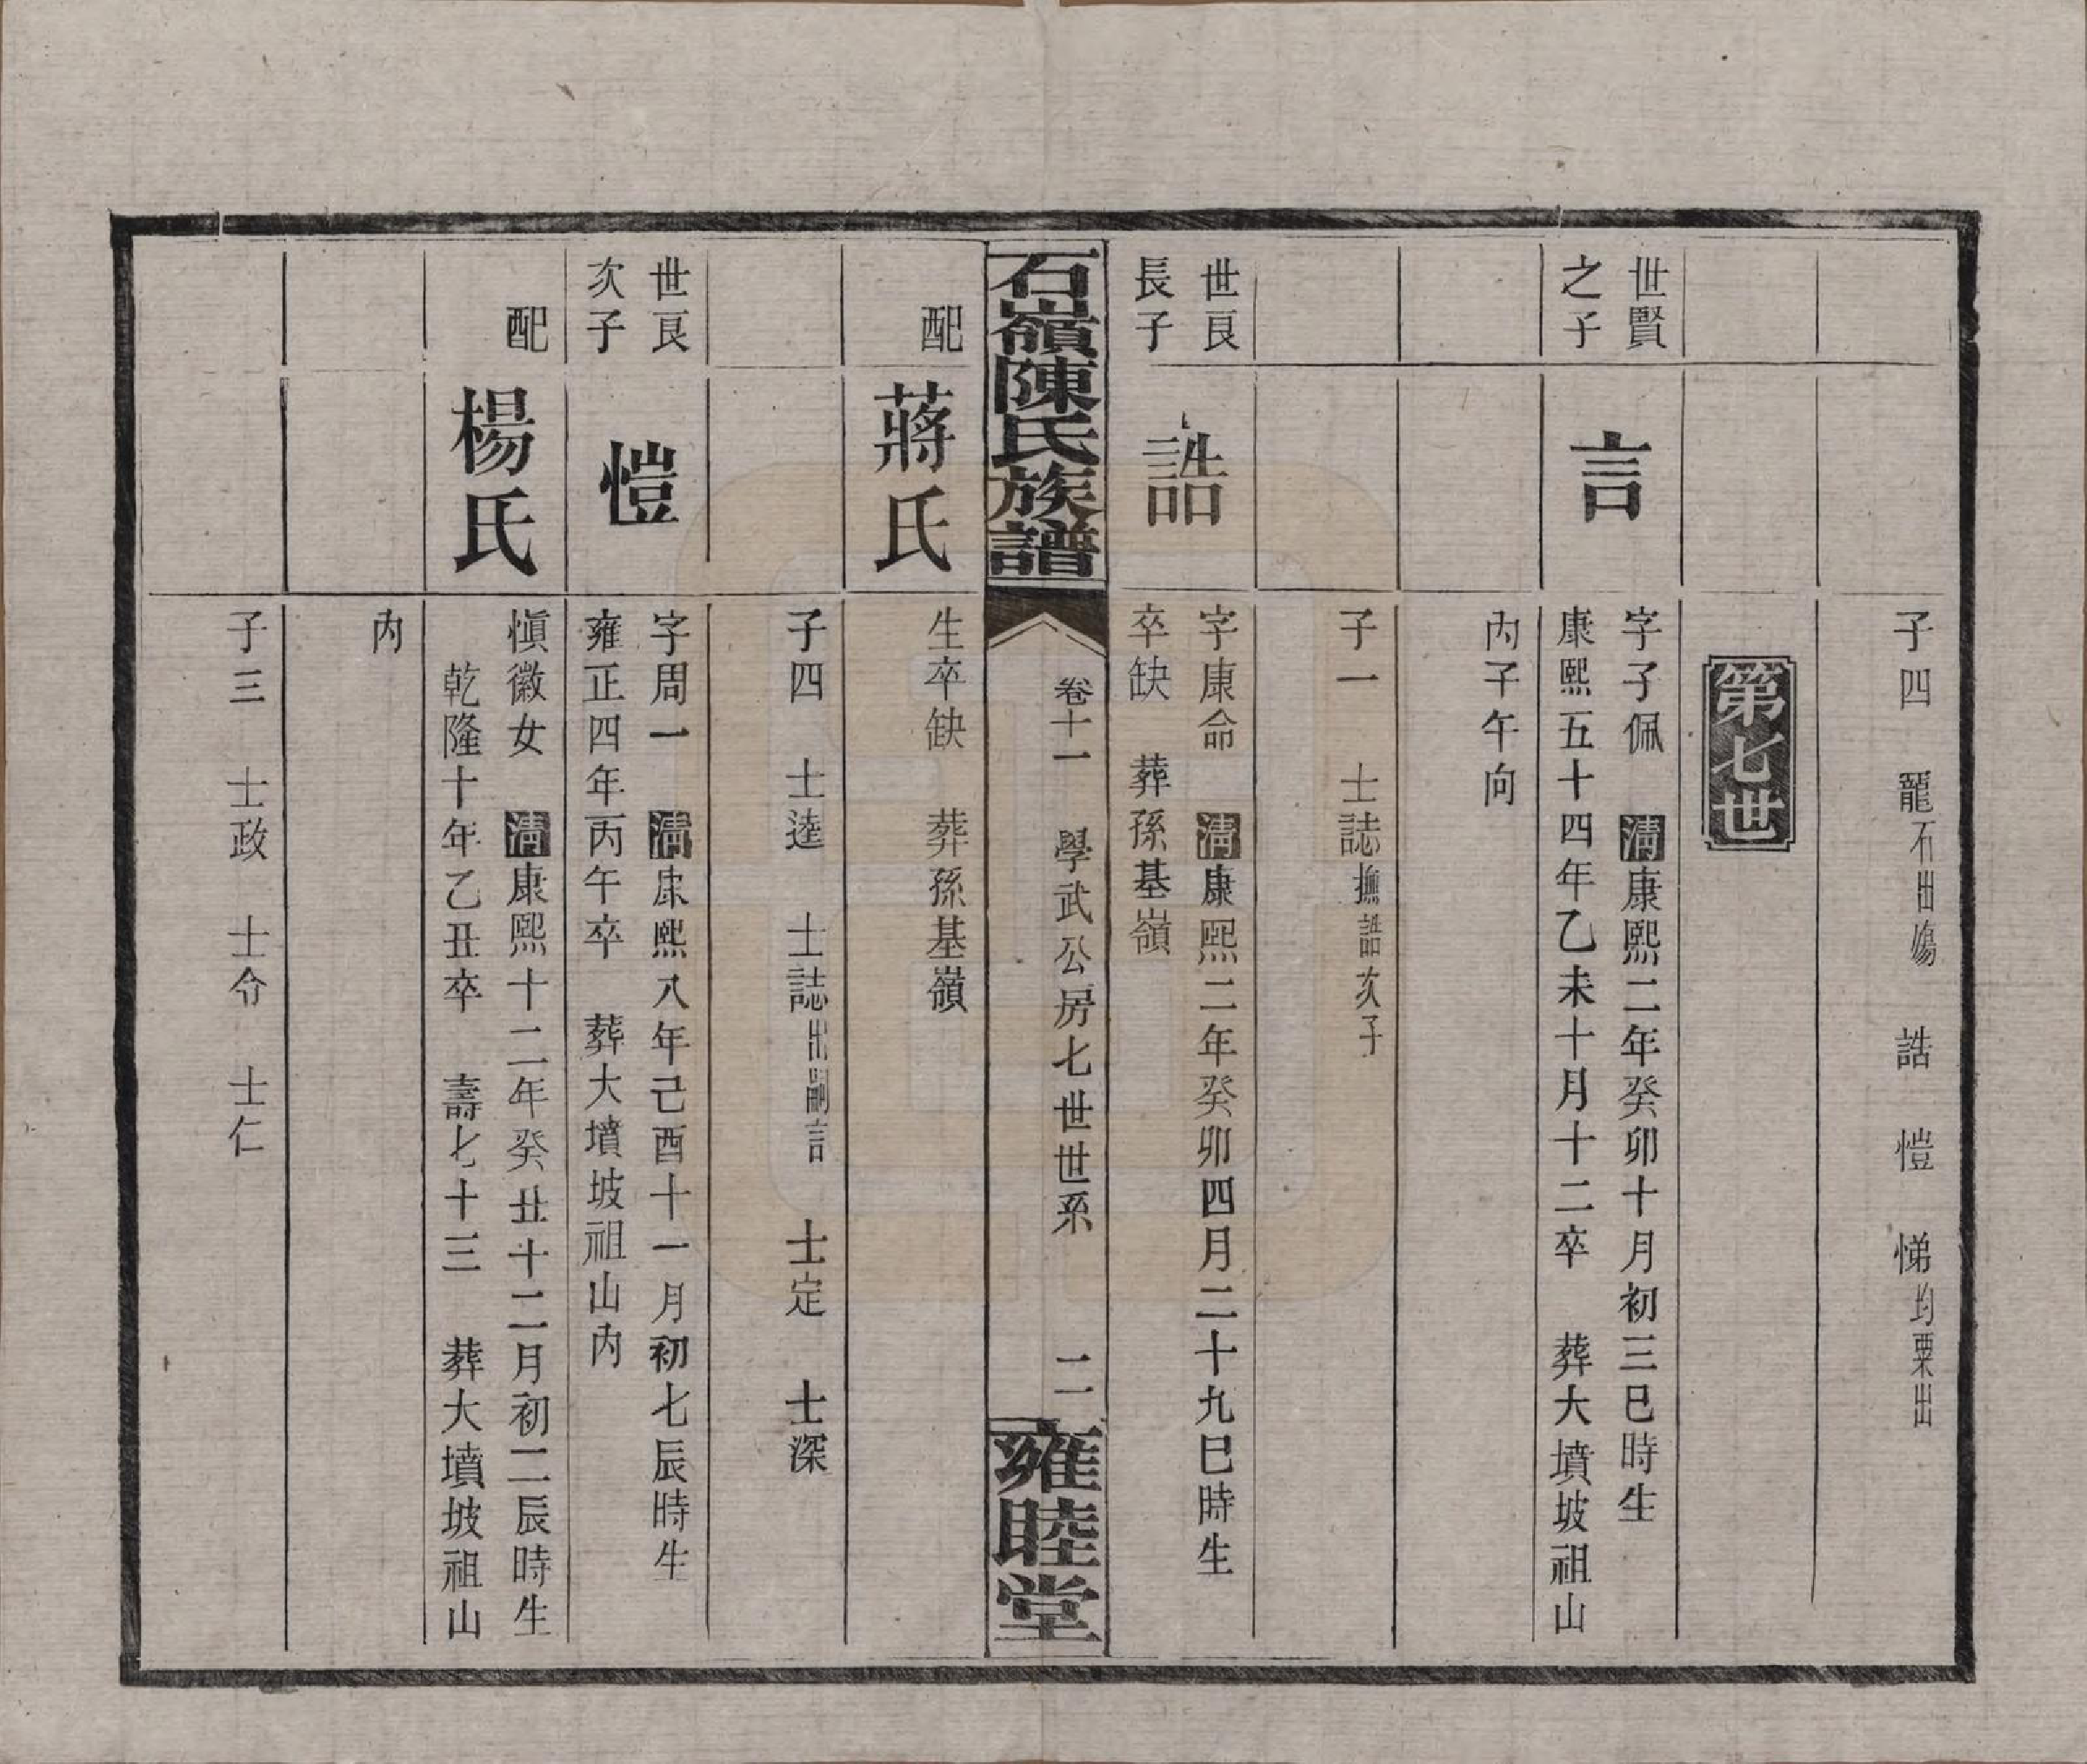 子四　龍石出鳰　誥　愷　悌均粟出
第七世
世賢
之子
言
字子佩　清康熙二年癸卯十月初三巳時生
康熙五十四年乙未十月十二卒　葬大墳坡祖山
內子午向
子一　士誌撫誥次子
世良
長子
誥
字康命　清康熙二年癸卯四月二十九巳時生
卒缺　葬孫基嶺
石嶺陳氏族譜
卷十一　學武公房七世世系　二
雍睦堂
配
蔣氏
生卒缺　葬孫基嶺
子四　士逵　士誌出嗣言　士定　士深
世良
次子
愷
字周一　清康熙八年己酉十一月初七辰時生
雍正四年丙午卒　葬大墳坡祖山內
配
楊氏
愼徽女　清康熙十二年癸丑十二月初二辰時生
乾隆十年乙丑卒　壽七十三　葬大墳坡祖山
內
子三　士政　士令　士仁